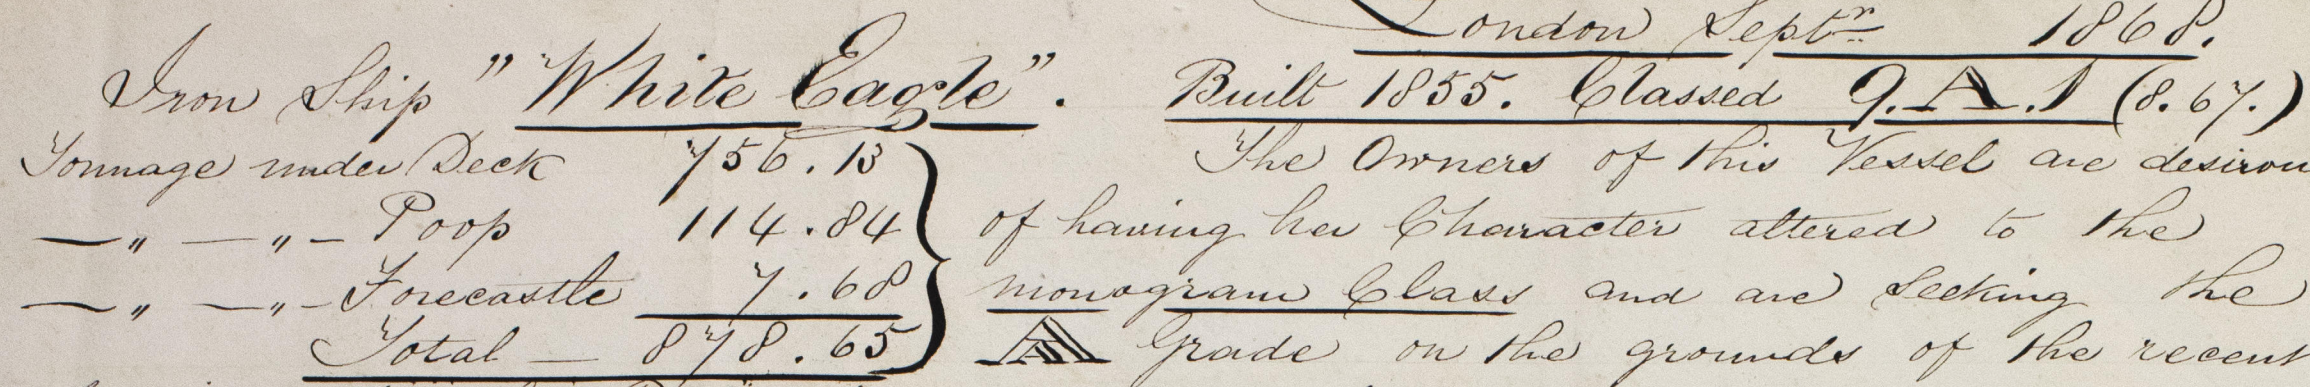 London Septr 1868.
Iron Ship "White Eagle". Built 1855. Classed 9.A.1 (8.67.)
Tonnage under Deck 756.13
—„ —„— Poop 114.84
—„ —„— Forecastle 7.68
Total — 878.65
The Owners of this Vessel are desirou
of having her Character altered to the
monogram Class and are seeking the
A Grade on the grounds of the recent